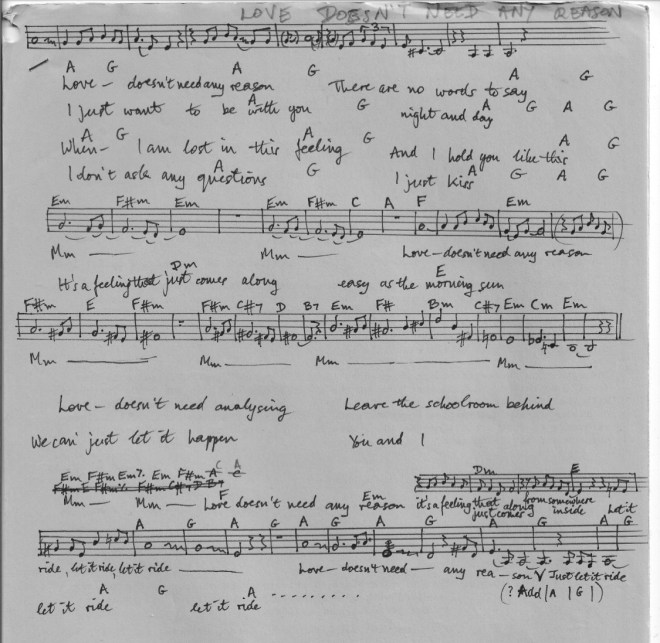 LOVE DOESN'T NEED ANY REASON
A G A G A G
Love – doesn't need any reason There are no words to say
A G A G A G
I just want to be with you night and day
A G A G A G
When – I am lost in this feeling And I hold you like this
A G A G A G
I don't ask any questions I just kiss
Em F#m Em Em F#m C A F Em
Mm Mm Love – doesn't need any reason
Dm E
It's a feeling that just comes along easy as the morning sun
F#m E F#m F#m C#7 D B7 Em F# Bm C#7 Em Cm Em
Mm Mm Mm Mm
Love – doesn't need analysing Leave the schoolroom behind
We can just let it happen You and I
Em F#m Em Em F#m A C A
Dm E
Mm Mm F Love doesn't need any Em reason it's a feeling that just comes along from somewhere inside Let it
A G A G A G A G A G A G
ride, let it ride, let it ride Love – doesn't need – any rea – son V Just let it ride
A G A (? Add | A | G | )
let it ride let it ride